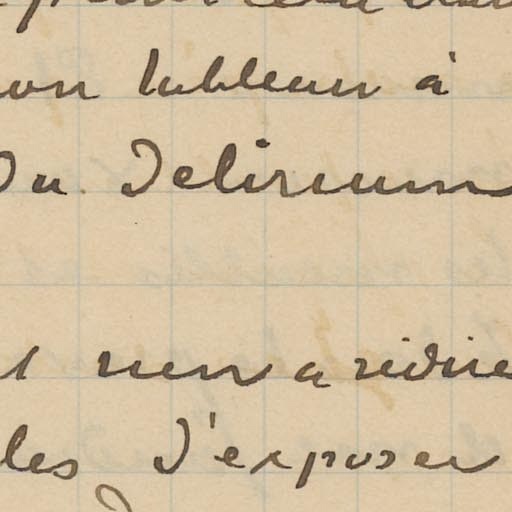 on tableau à
Du Delirium
rien a redire
les d'exposer